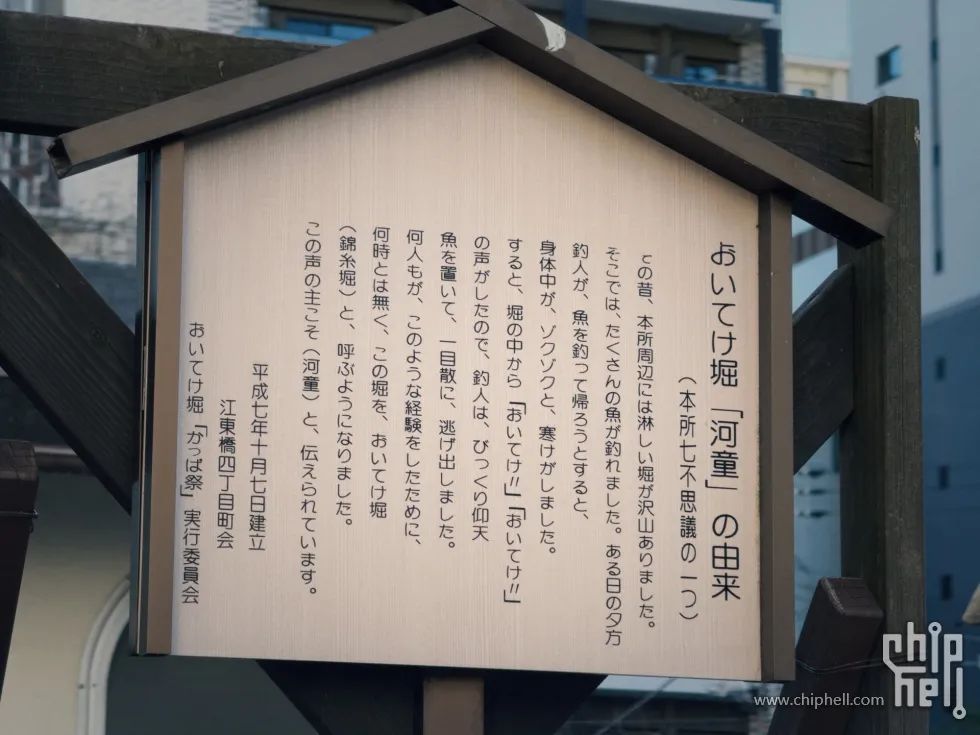 おいてけ堀「河童」の由来
（本所七不思議の一つ）
その昔、本所周辺には淋しい堀が沢山ありました。
そこでは、たくさんの魚が釣れました。ある日の夕方
釣人が、魚を釣って帰ろうとすると、
身体中が、ゾクゾクと、寒けがしました。
すると、堀の中から「おいてけ!!」「おいてけ!!」
の声がしたので、釣人は、びっくり仰天
魚を置いて、一目散に、逃げ出しました。
何人もが、このような経験をしたために、
何時とは無く、この堀を、おいてけ堀
（錦糸堀）と、呼ぶようになりました。
この声の主こそ（河童）と、伝えられています。
平成七年十月七日建立
江東橋四丁目町会
おいてけ堀「かっぱ祭」実行委員会
www.chiphell.com
chip
hell